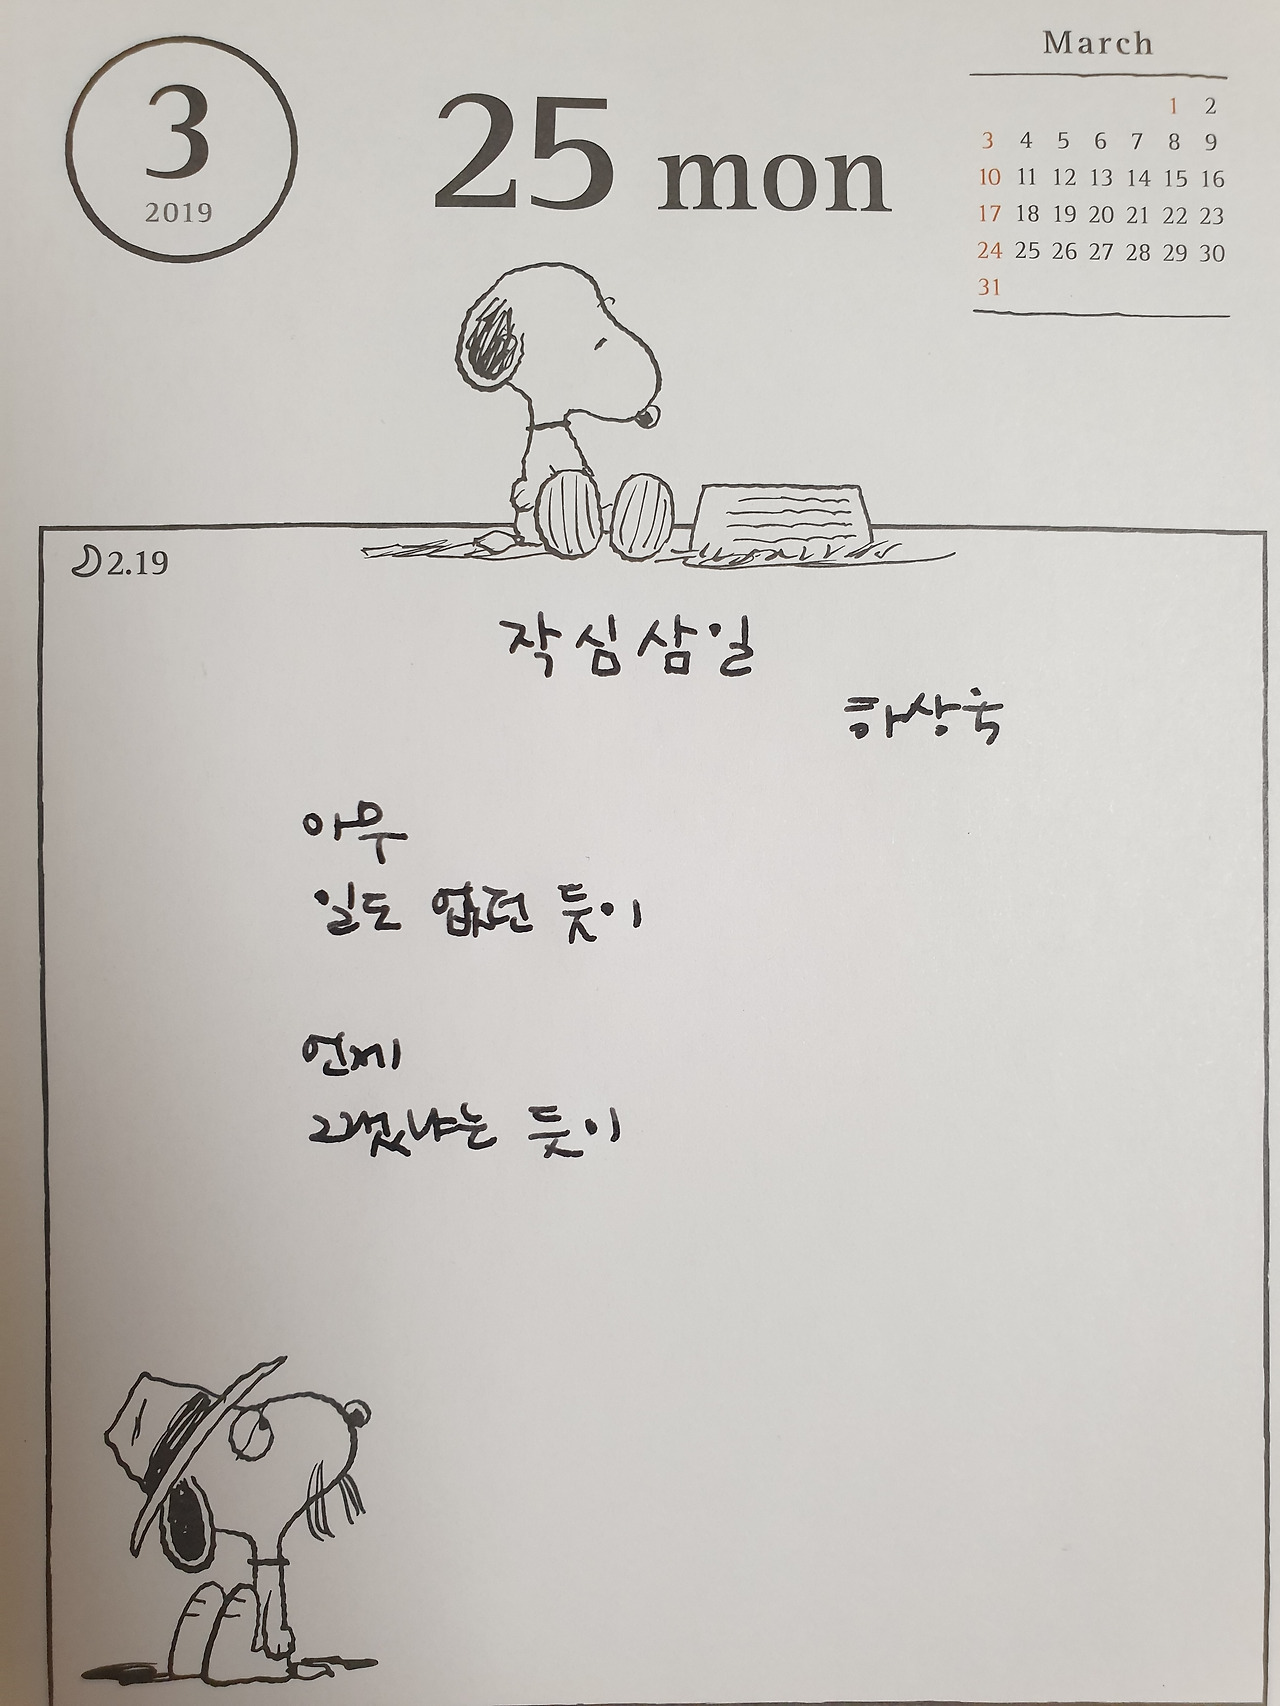 3
2019
25 mon
March
1 2
3 4 5 6 7 8 9
10 11 12 13 14 15 16
17 18 19 20 21 22 23
24 25 26 27 28 29 30
31
2.19
작심삼일
하상욱
아무
일도 없던 듯이
언제
그랬냐는 듯이